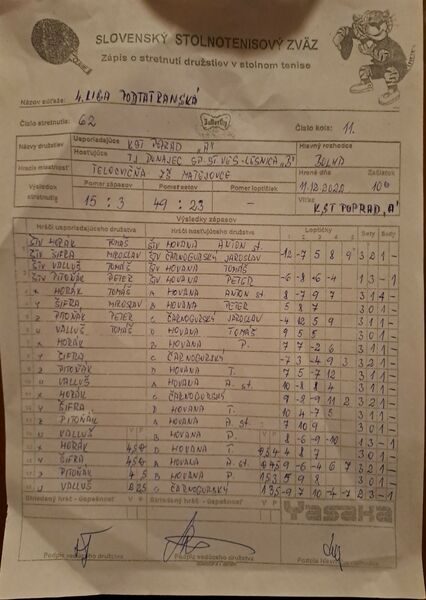 SLOVENSKÝ STOLNOTENISOVÝ ZVÄZ
Zápis o stretnutí družstiev v stolnom tenise
Názov súťaže: 4. LIGA PODTATRANSKÁ
Číslo stretnutia: 62 Butterfly Číslo kola: 11.
Názvy družstiev Usporiadajúce KST POPRAD "A" Hlavný rozhodca
Hosťujúce TJ DUNAJEC SP. ST. VES-LESNICA "B"
Hracia miestnosť TELOCVIČŇA ZŠ MATEJOVCE Hrané dňa Začiatok
Výsledok stretnutia Pomer zápasov Pomer setov Pomer loptičiek 11.12.2022 10
15 : 3 49 : 23 - Víťaz KST POPRAD "A"
Výsledky zápasov
Hráči usporiadajúceho družstva Hráči hosťujúceho družstva Loptičky Sety Body
ŠTV HORÁK TOMÁŠ ŠTV HOVANA ANTON st.
ŠTV ŠIFRA MIROSLAV ŠTV ČARNOGURSKÝ JAROSLAV -12 -7 5 8 9 3 2 1 -
ŠTV VALLUŠ TOMÁŠ ŠTV HOVANA TOMÁŠ
ŠTV PITOŇÁK PETER ŠTV HOVANA PETER -6 -8 6 -4 1 3 - 1
X HORÁK TOMÁŠ A HOVANA ANTON st 8 -7 9 7 3 1 1 -
Y ŠIFRA MIROSLAV B HOVANA PETER 5 8 7 3 0 1 -
Z PITOŇÁK PETER C ČARNOGURSKÝ JAROSLAV -4 12 5 9 3 1 1 -
U VALLUŠ TOMÁŠ D HOVANA TOMÁŠ 9 5 5 3 0 1 -
X HORÁK B HOVANA P. 7 7 -2 6 3 1 1 -
Y ŠIFRA C ČARNOGURSKÝ -7 3 -4 9 3 3 2 1 -
Z PITOŇÁK D HOVANA T. 7 5 -7 12 3 1 1 -
U VALLUŠ A HOVANA A. st. 10 -8 8 4 3 1 1 -
X HORÁK C ČARNOGURSKÝ 9 -8 -9 11 2 3 2 1 -
Y ŠIFRA D HOVANA T. 10 4 -7 5 3 1 1 -
Z PITOŇÁK A HOVANA A. st 7 10 9 3 0 1 -
U VALLUŠ B HOVANA P. 8 -6 -9 -10 1 3 - 1
X HORÁK D HOVANA T. 4 8 7 3 0 1 -
Y ŠIFRA A HOVANA A. st. 9 -6 -4 6 7 3 2 1 -
Z PITOŇÁK B HOVANA P. 9 8 3 0 1 -
U VALLUŠ C ČARNOGURSKÝ -9 7 10 -4 -7 2 3 - 1
Striedaný hráč - Úspešnosť Striedaný hráč - Úspešnosť Yasaka
Podpis vedúceho družstva Podpis vedúceho družstva